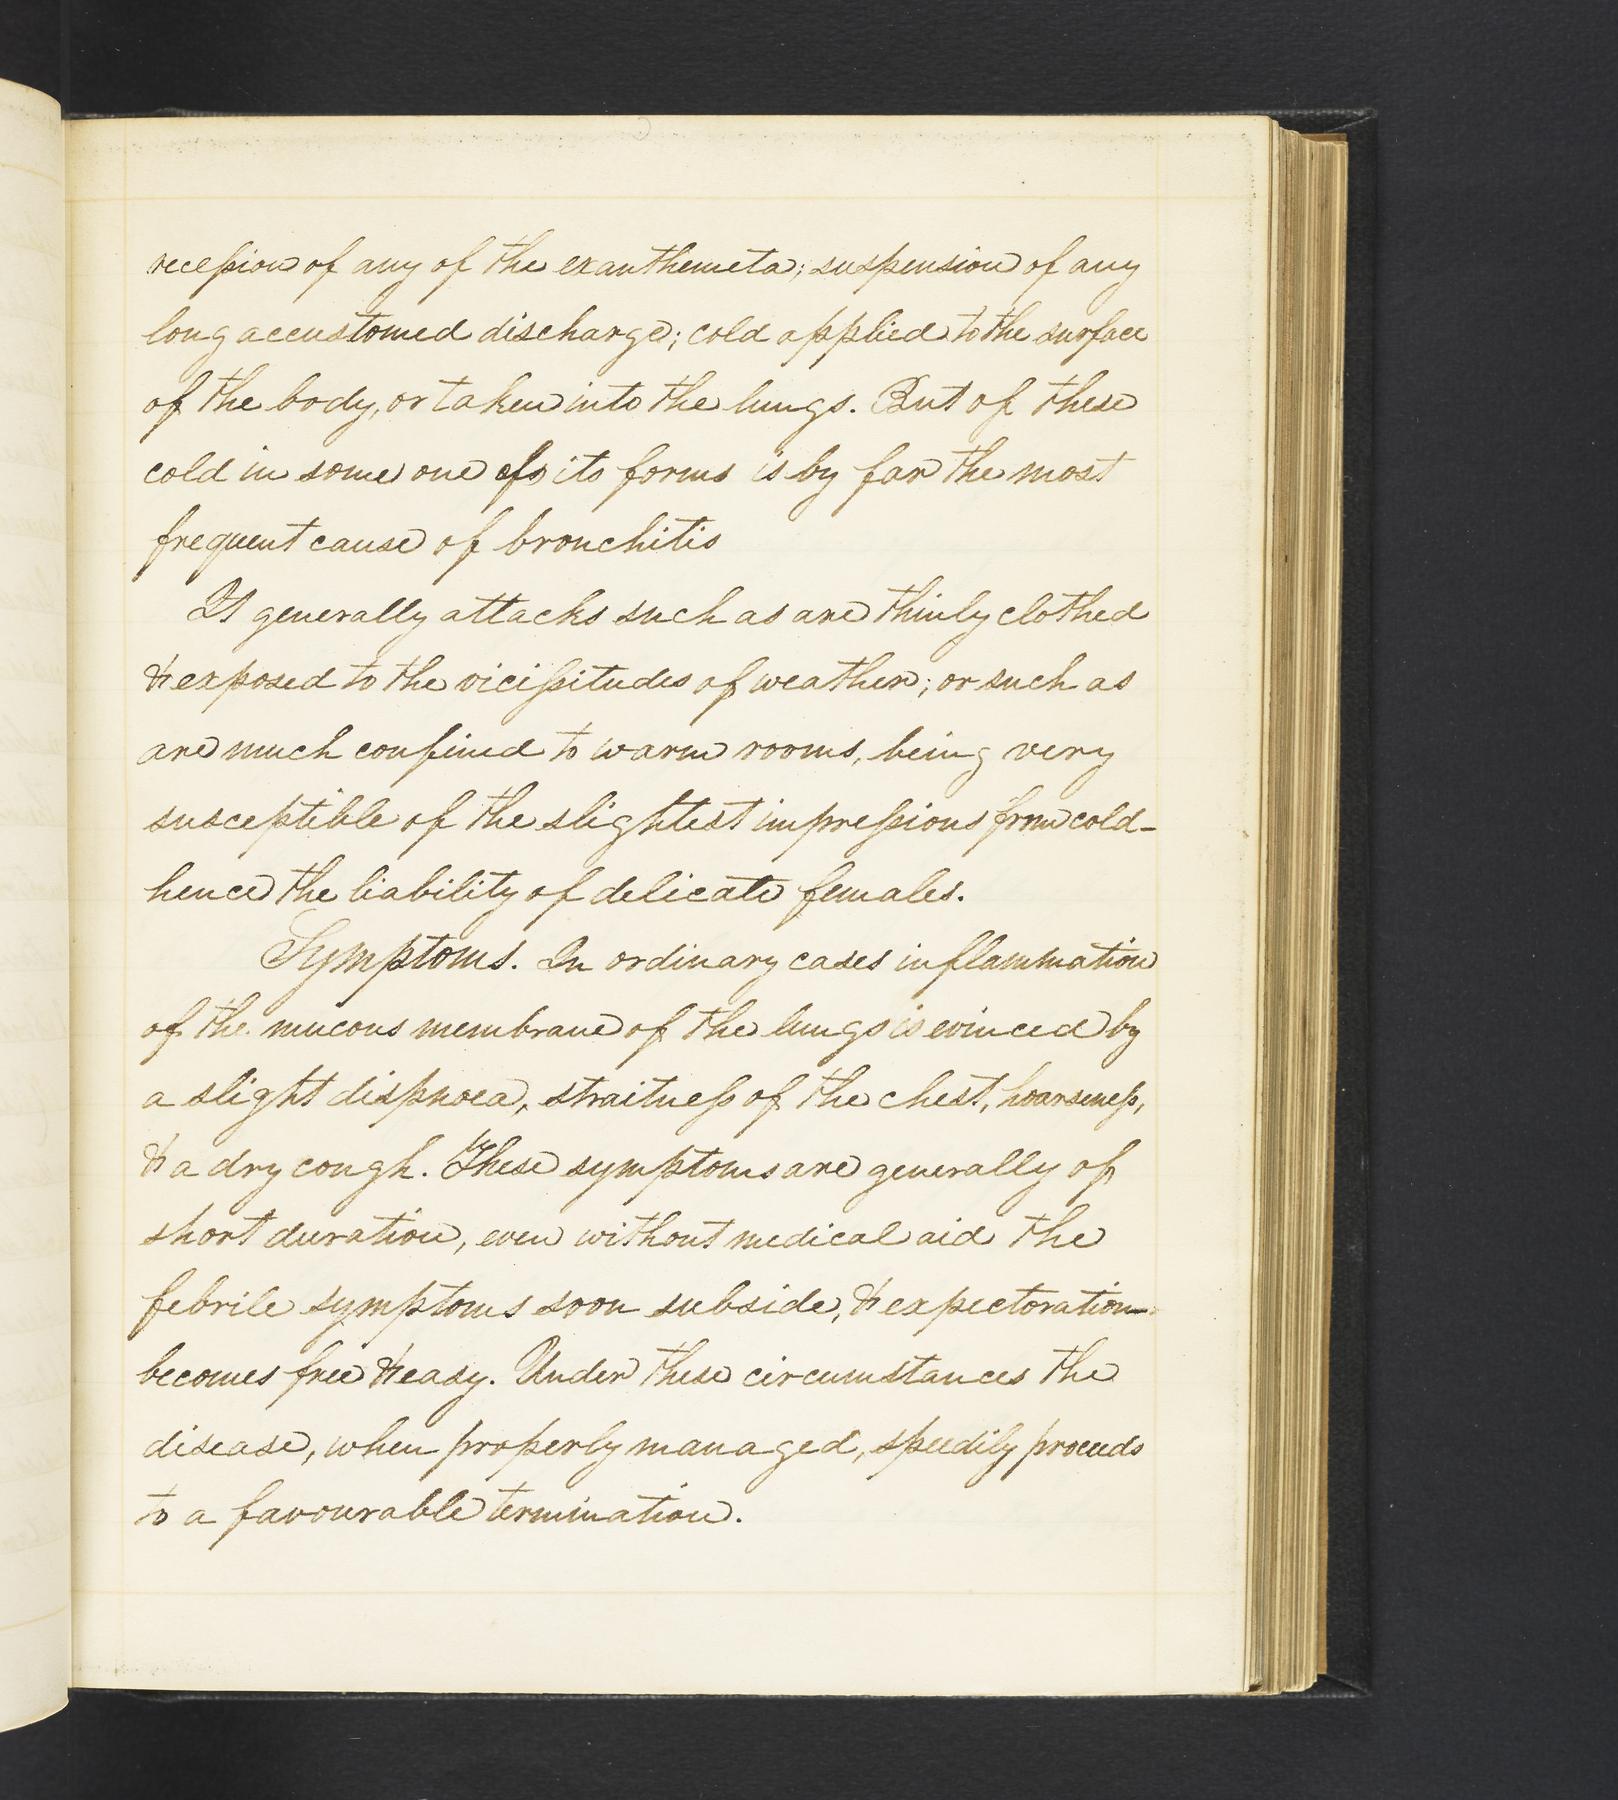 recession of any of the exanthemeta; suspension of any
long accustomed discharge; cold applied to the surface
of the body, or taken into the lungs. But of these
cold in some one of its forms is by far the most
frequent cause of bronchitis
It generally attacks such as are thinly clothed
& exposed to the vicissitudes of weather; or such as
are much confined to warm rooms, being very
susceptible of the slightest impressions from cold-
hence the liability of delicate females.
Symptoms. In ordinary cases inflammation
of the mucous membrane of the lungs is evinced by
a slight dispnoea, straitness of the chest, hoarseness,
& a dry cough. These symptoms are generally of
short duration, even without medical aid the
febrile symptoms soon subside, & expectoration
becomes free & easy. Under these circumstances the
disease, when properly managed, speedily proceeds
to a favourable termination.